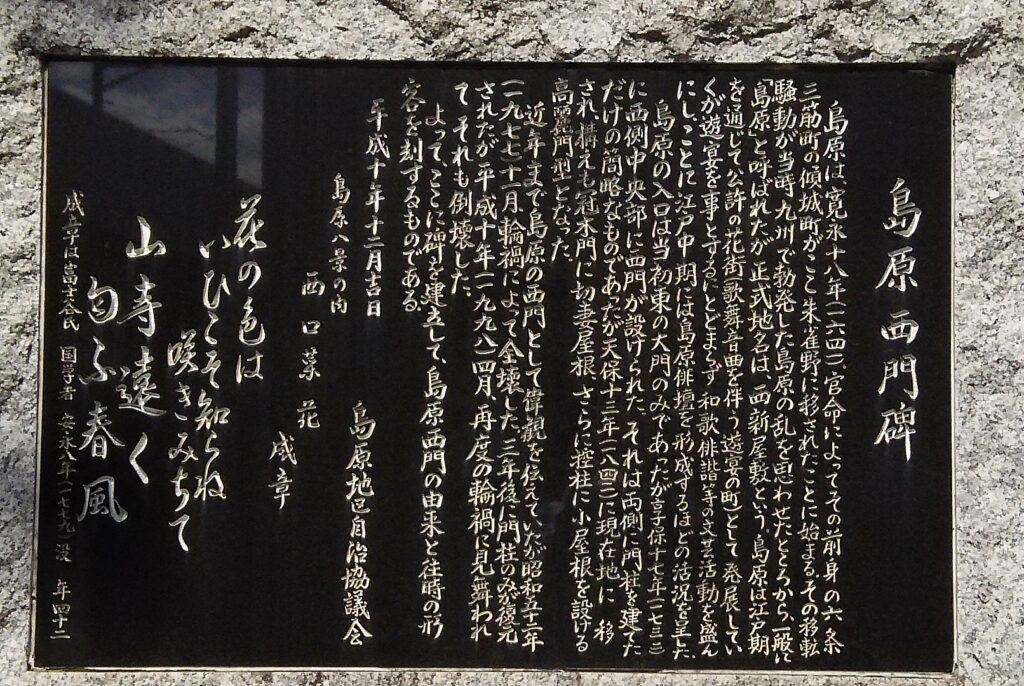 島原西門碑
島原は、寛永十八年(一六四一)、官命によってその前身の六条
三筋町の傾城町がここ朱雀野に移されたことに始まる。その移転
騒動が当時、九州で勃発した島原の乱を思わせたところから、一般に
「島原」と呼ばれたが正式地名は、西新屋敷という。島原は江戸期
を通じて公許の花街(歌舞音曲を伴う遊宴の町)として発展してい
くが、遊宴を事とするにとどまらず、和歌俳諧等の文芸活動を盛ん
にし、ことに江戸中期には島原俳壇を形成するほどの活況を呈した。
島原の入口は当初東の大門のみであったが、享保十七年(一七三二)
に西側中央部に西門が設けられた。それは両側に門柱を建てた
だけの簡略なものであったが、天保十三年(一八四二)に現在地に移
され、構えも冠木門に切妻屋根、さらに控柱に小屋根を設ける
高麗門型となった。
近年まで島原の西門として偉観を伝えていたが、昭和五十二年
(一九七七)十一月輪禍によって全壊した。三年後に門柱のみ復元
されたが、平成十年(一九九八)四月、再度の輪禍に見舞われ
て、それも倒壊した。
よって、ここに碑を建立して、島原西門の由来と往時の形
容を刻するものである。
平成十年十二月吉日
島原地区自治協議会
島原八景の内
西口菜花
成章
花の色は
いひこそ知らね
咲きみちて
山寺遠く
匂ふ春風
成章は富士谷氏 国学者 安永八年(一七七九)没 年四十二